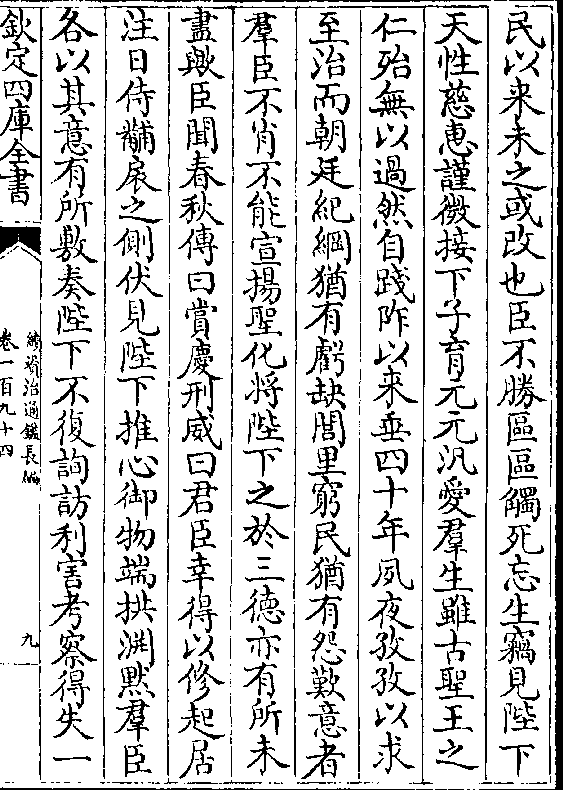 民以来未之或改也臣不勝區區觸死忘生竊見陛下
天性慈恵謹微接下子育元元汎愛羣生雖古聖王之
仁殆無以過然自踐阼以来垂四十年夙夜孜孜以求
至治而朝廷紀綱猶有虧缺閭里窮民猶有怨歎意者
羣臣不肖不能宣揚聖化将陛下之於三徳亦有所未
盡歟臣聞春秋傳曰賞慶刑威曰君臣幸得以修起居
注日侍黼扆之側伏見陛下推心御物端拱淵黙羣臣
各以其意有所敷奏陛下不復詢訪利害考察得失一
欽定四庫全書
續資治通鑑長編
卷一百九十四
九